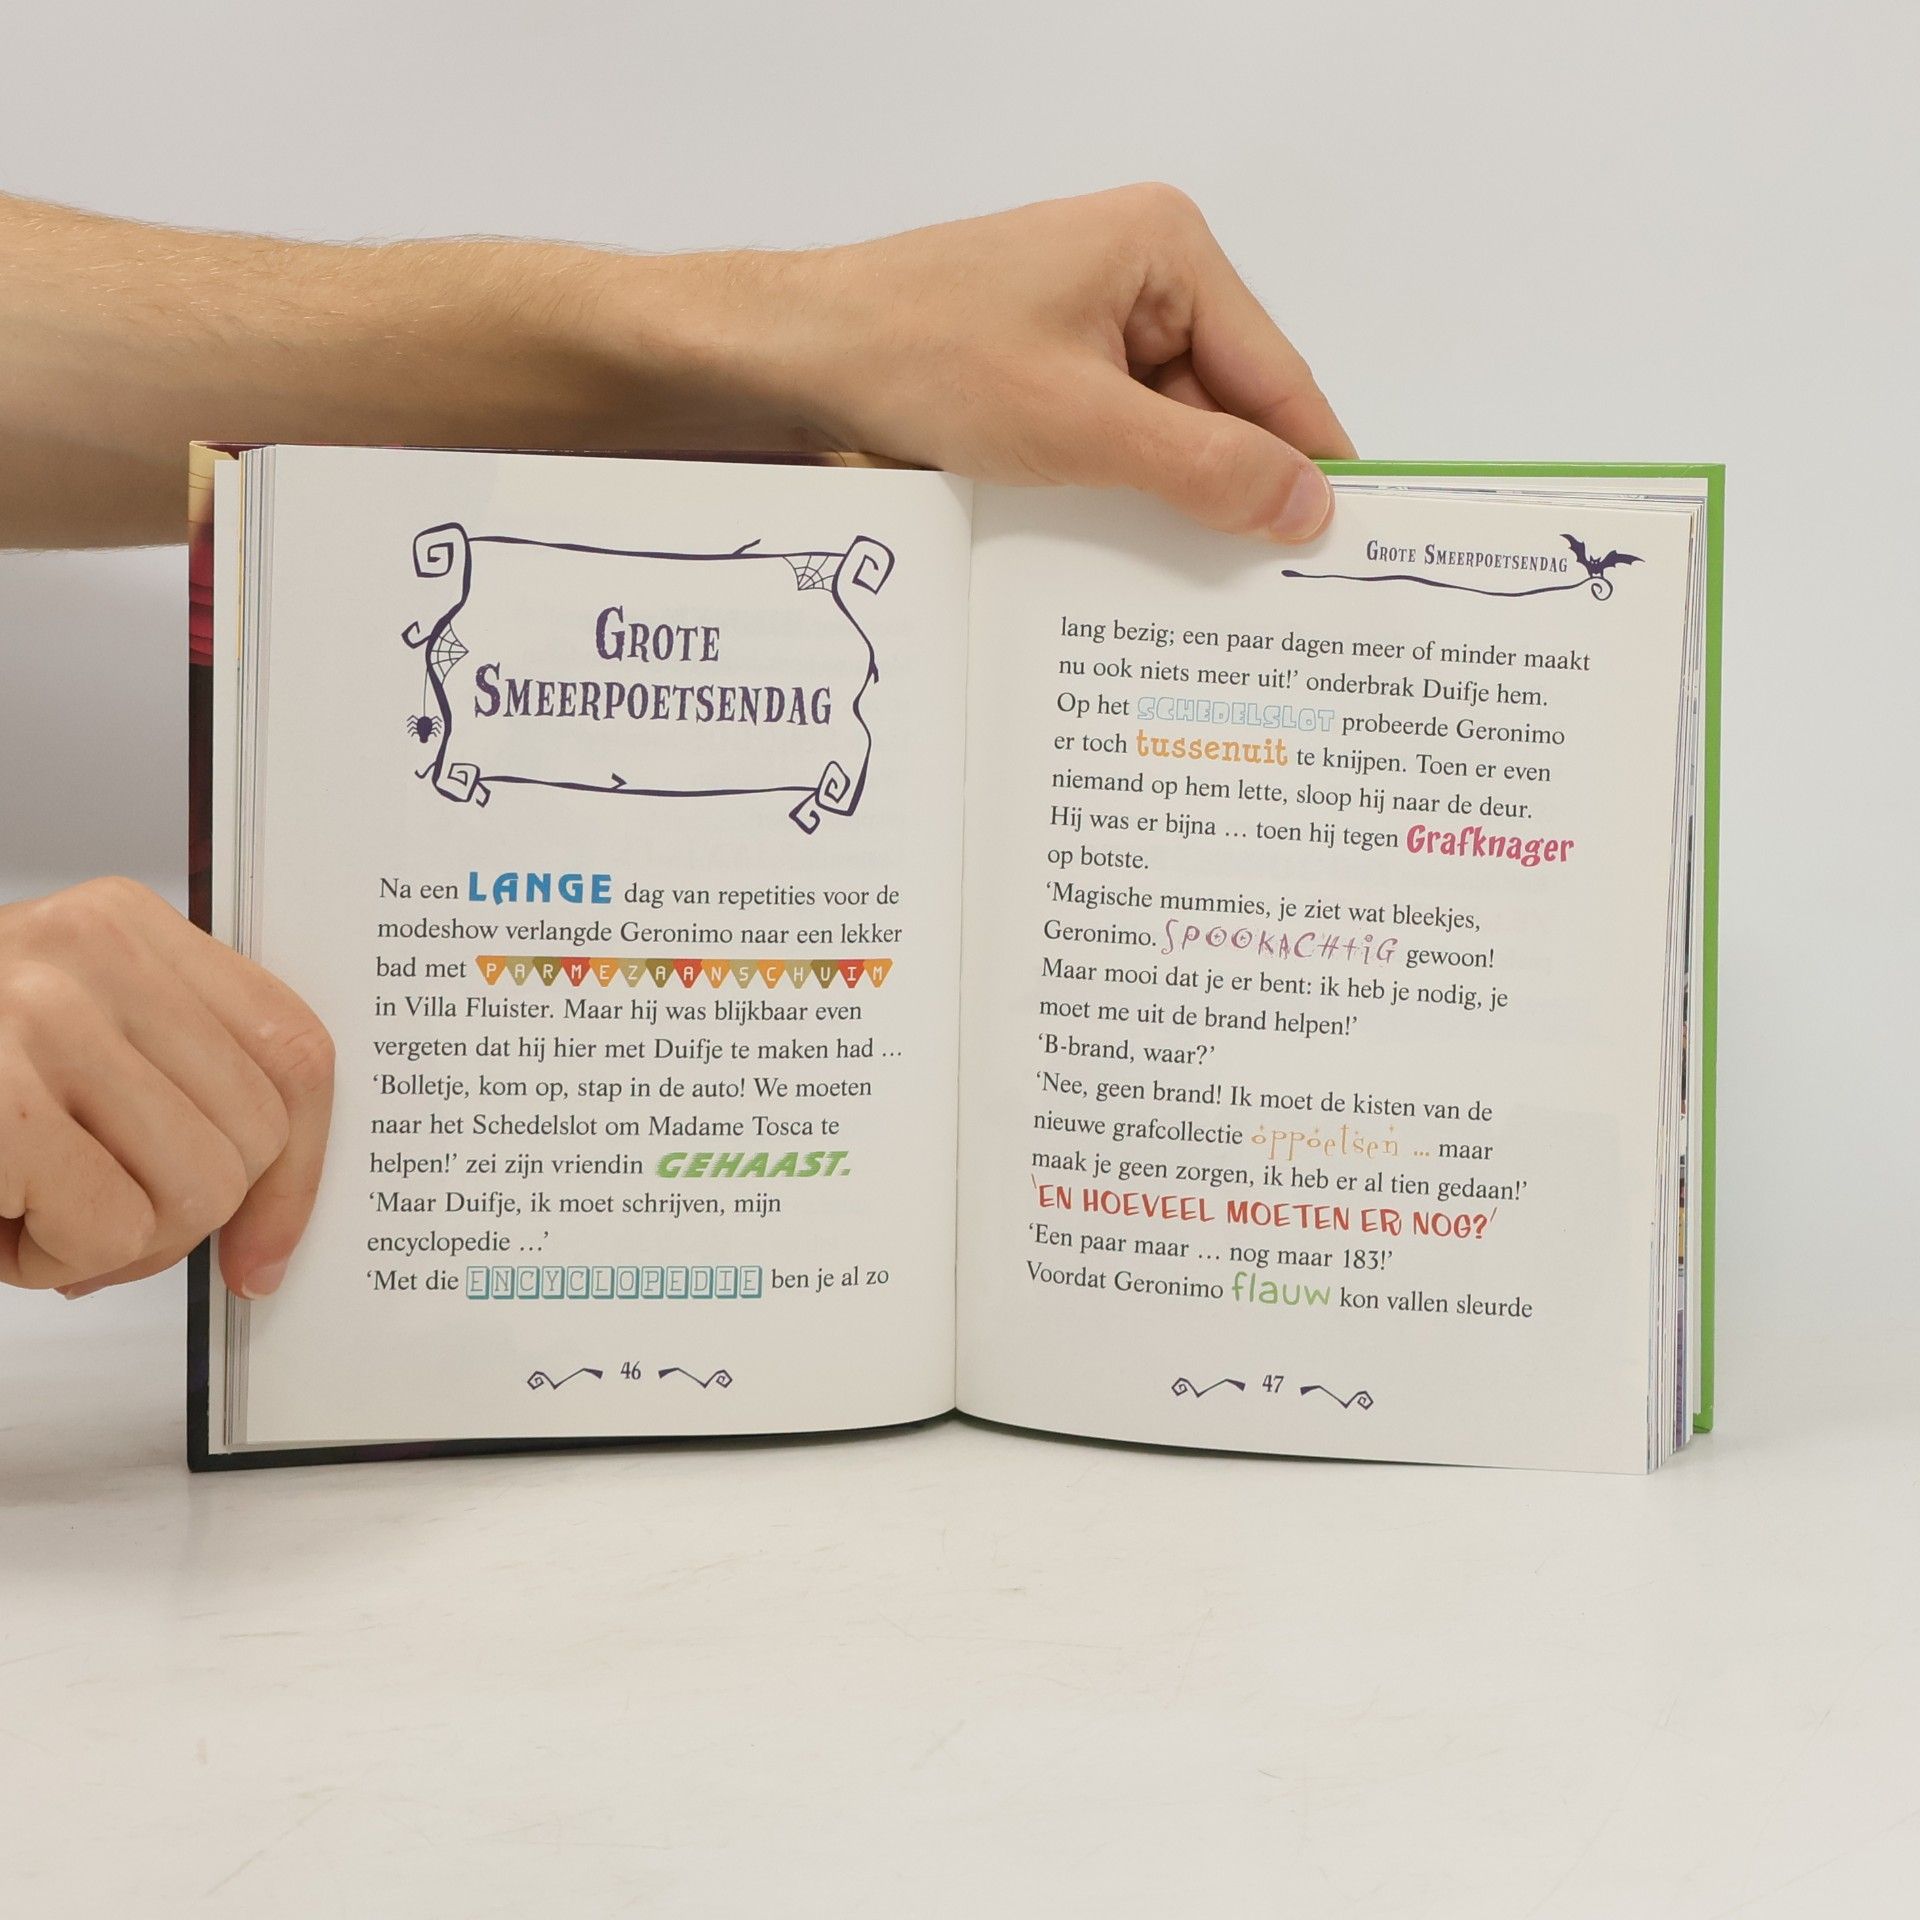 GROTE
SMEERPOETSENDAG
Na een LANGE dag van repetities voor de
modeshow verlangde Geronimo naar een lekker
bad met PARMEZAANSCHUIM
in Villa Fluister. Maar hij was blijkbaar even
vergeten dat hij hier met Duifje te maken had …
‘Bolletje, kom op, stap in de auto! We moeten
naar het Schedelslot om Madame Tosca te
helpen!’ zei zijn vriendin GEHAAST.
‘Maar Duifje, ik moet schrijven, mijn
encyclopedie …’
‘Met die ENCYCLOPEDIE ben je al zo
46
GROTE SMEERPOETSENDAG
lang bezig; een paar dagen meer of minder maakt
nu ook niets meer uit!’ onderbrak Duifje hem.
Op het SCHEDELSLOT probeerde Geronimo
er toch tussenuit te knijpen. Toen er even
niemand op hem lette, sloop hij naar de deur.
Hij was er bijna … toen hij tegen Grafknager
op botste.
‘Magische mummies, je ziet wat bleekjes,
Geronimo. SPOOKACHTIG gewoon!
Maar mooi dat je er bent: ik heb je nodig, je
moet me uit de brand helpen!’
‘B-brand, waar?’
‘Nee, geen brand! Ik moet de kisten van de
nieuwe grafcollectie oppoetsen … maar
maak je geen zorgen, ik heb er al tien gedaan!’
‘EN HOEVEEL MOETEN ER NOG?’
‘Een paar maar … nog maar 183!’
Voordat Geronimo flauw kon vallen sleurde
47